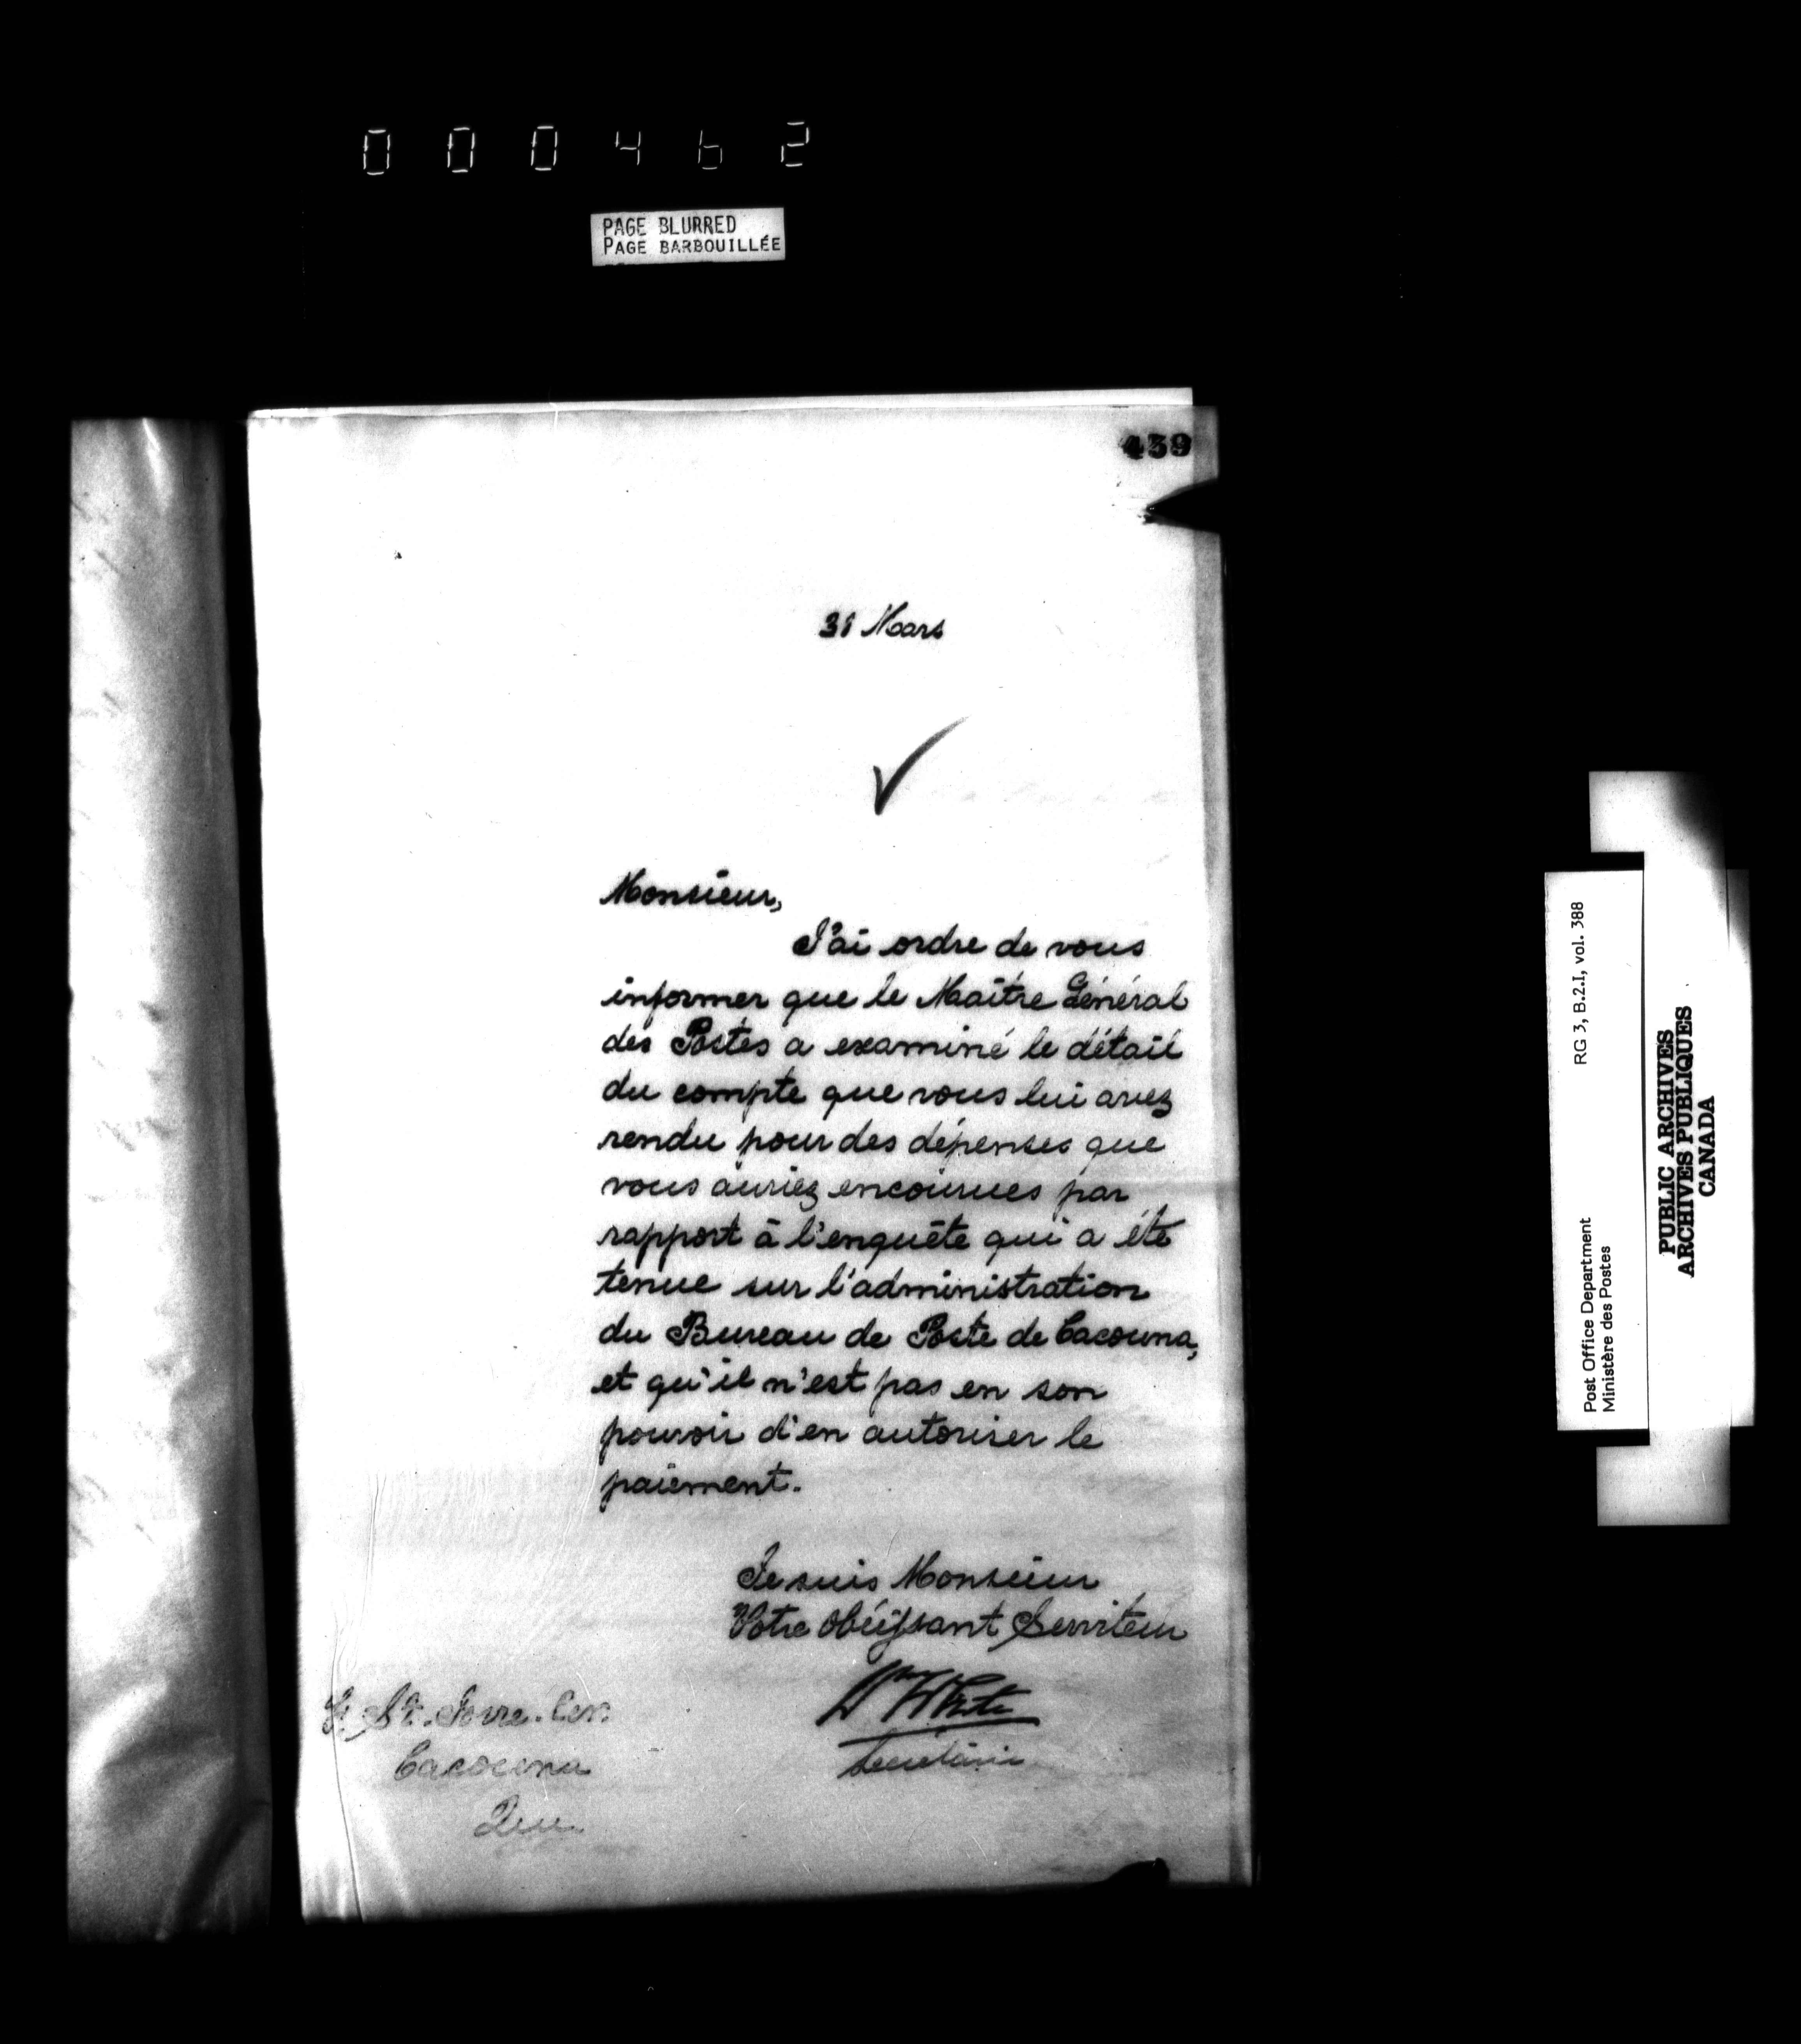 000462
PAGE BLURRED
PAGE BARBOUILLÉE
439
31 Mars
Monsieur,
J'ai ordre de vous
informer que le Maître Général
des Postes a examiné le détail
du compte que vous lui avez
rendu pour des dépenses que
vous auriez encourues par
rapport à l'enquête qui a été
tenue sur l'administration
du Bureau de Poste de Cacouna,
et qu'il n'est pas en son
pouvoir d'en autoriser le
paiement.
Je suis Monsieur
Votre obéissant Serviteur
Wm White
Secrétaire
St.
Cacouna
Que
Post Office Department
Ministère des Postes
RG 3, B.2.I, vol. 388
PUBLIC ARCHIVES
ARCHIVES PUBLIQUES
CANADA